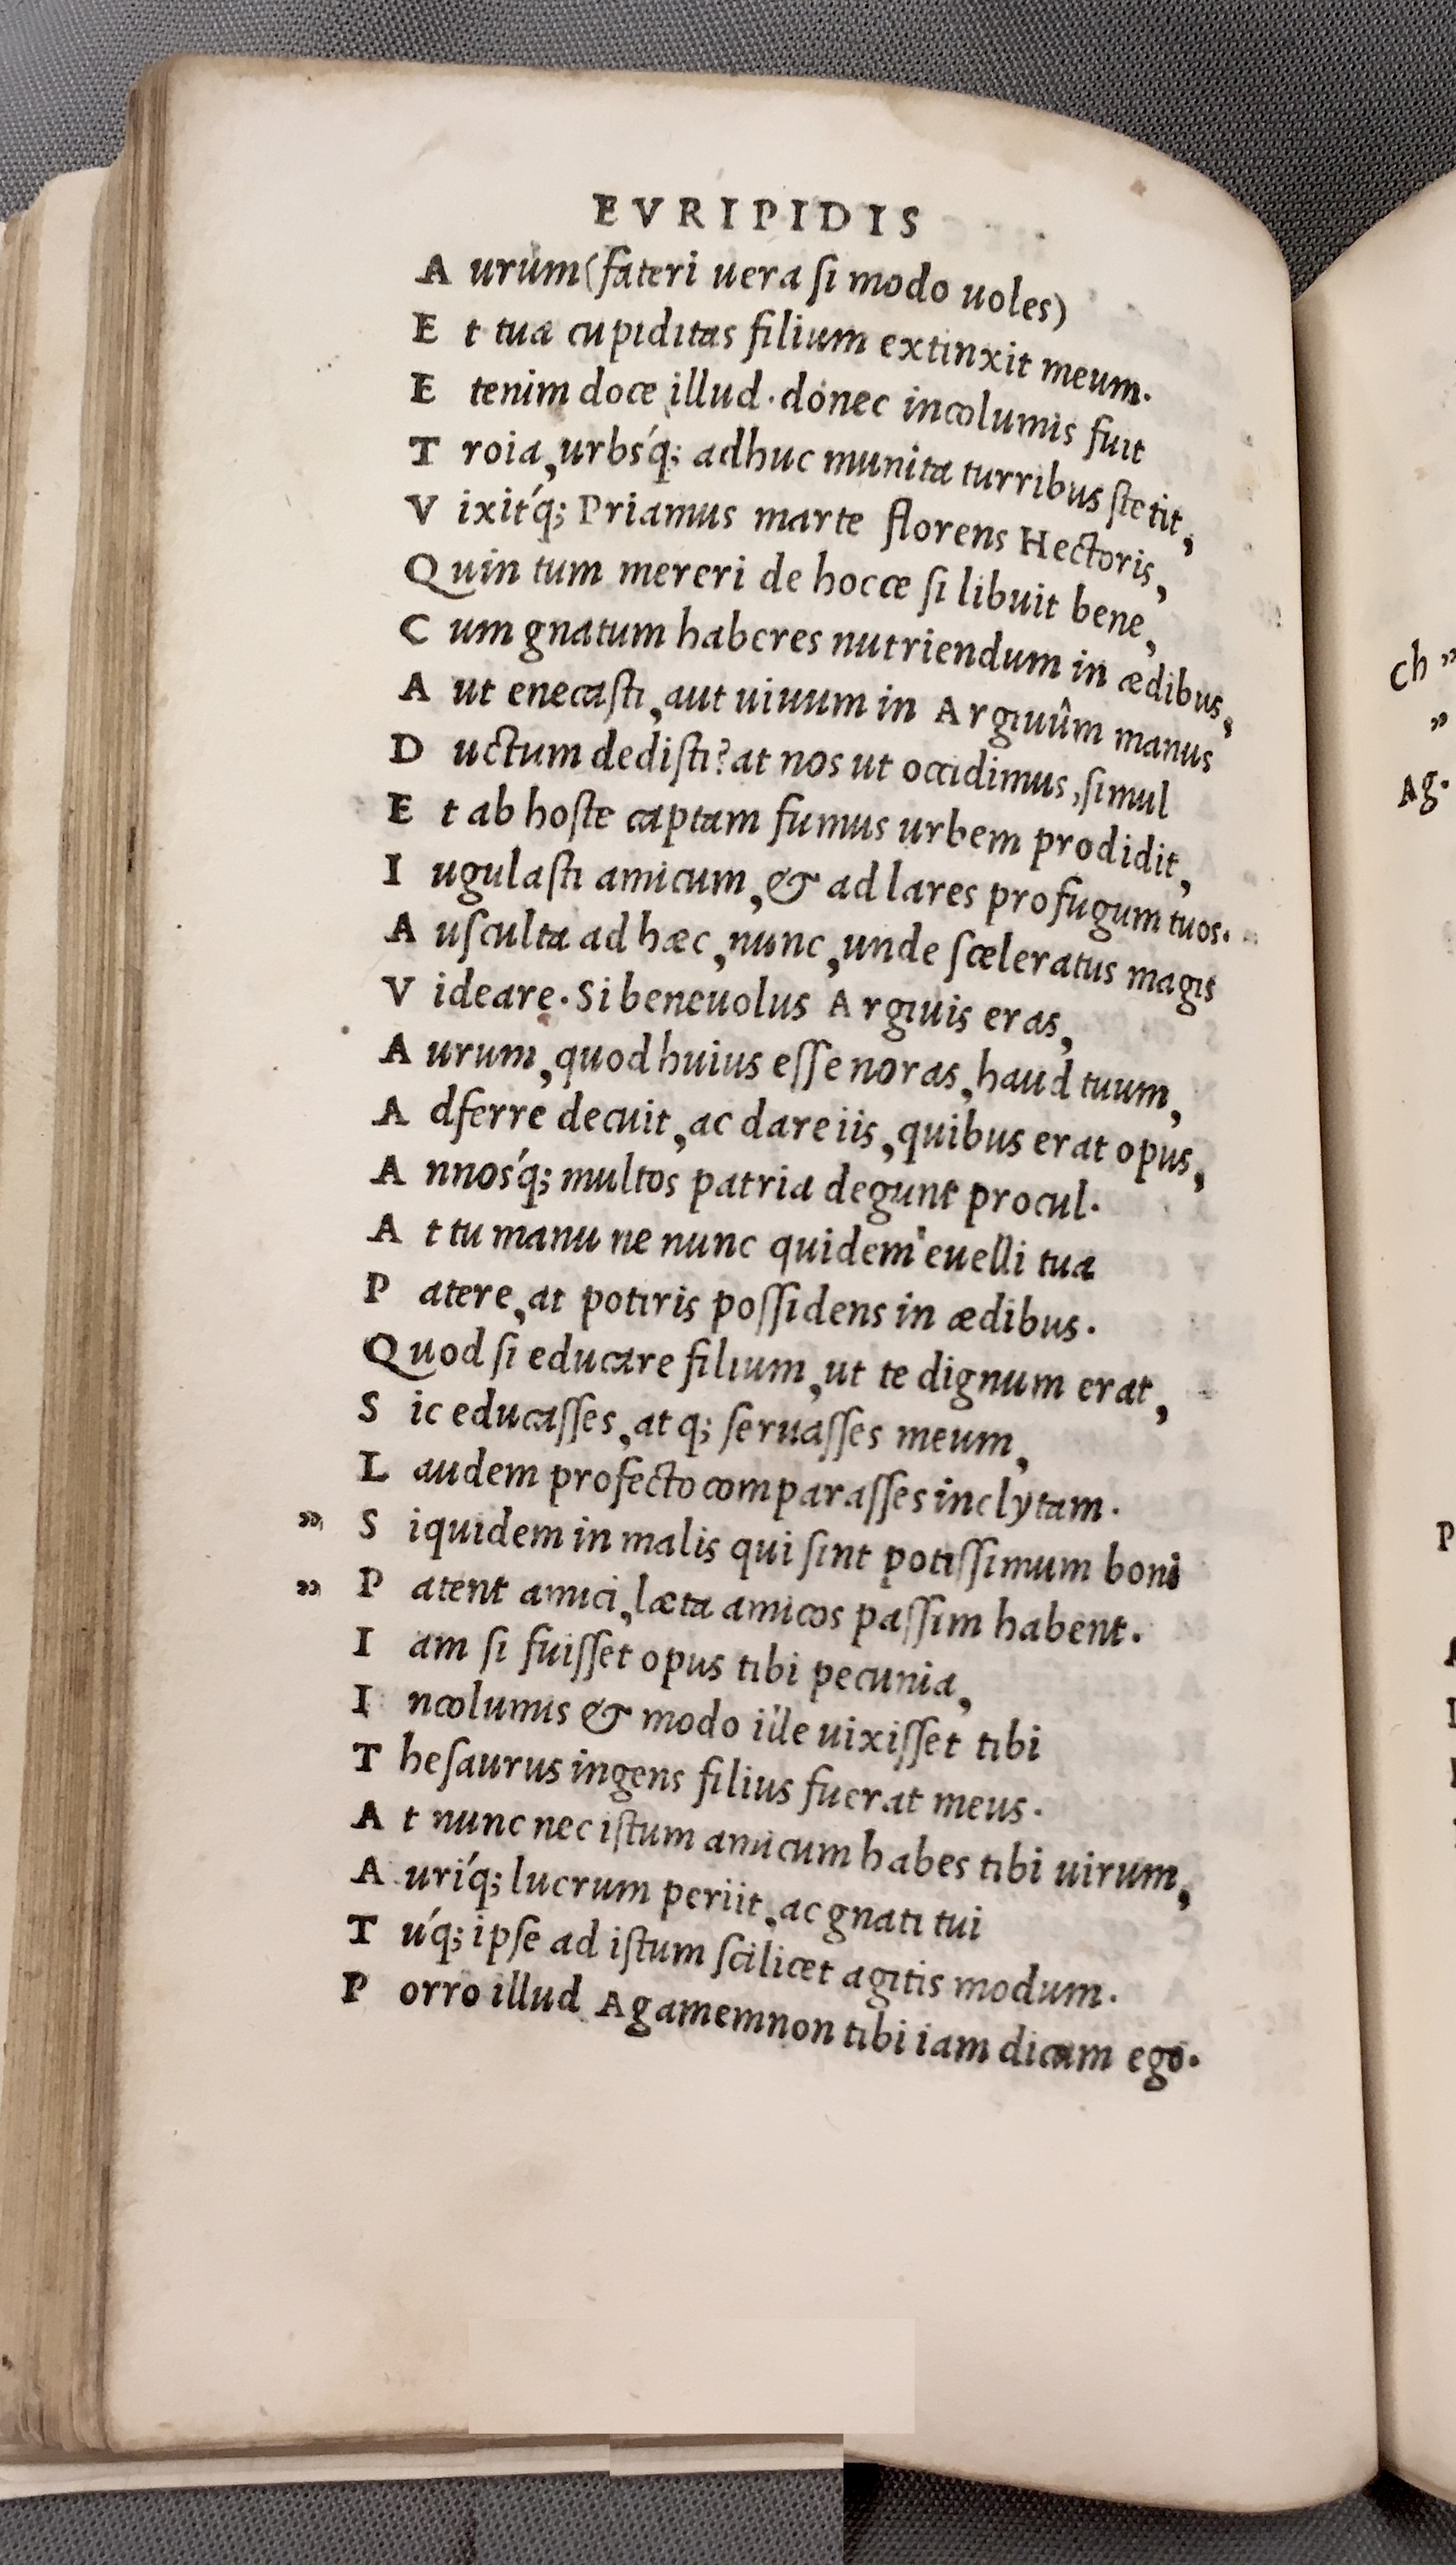 EVRIPIDIS
A urum (fateri uera ſi modo uoles)
E t tua cupiditas filium extinxit meum.
E tenim doce illud. donec incolumis fuit
T roia, urbsq́; adhuc munita turribus ſtetit,
V ixitq́; Priamus marte florens Hectoris,
Q uin tum mereri de hocce ſi libuit bene,
C um gnatum haberes nutriendum in ædibus,
A ut enecaſti, aut uiuum in Argiuûm manus
D uctum dediſti? at nos ut occidimus, ſimul
E t ab hoſte captam fumus urbem prodidit,
I ugulaſti amicum, & ad lares profugum tuos.
A uſculta ad hæc, nunc, unde ſceleratus magis
V ideare. Si beneuolus Argiuis eras,
A urum, quod huius eſſe noras, haud tuum,
A dferre decuit, ac dare iis, quibus erat opus,
A nnosq́; multos patria degunt procul.
A t tu manu ne nunc quidem euelli tua
P atere, at potiris poſſidens in ædibus.
Q uod ſi educare filium, ut te dignum erat,
S ic educaſſes, atq; ſeruaſſes meum,
L audem profecto comparaſſes inclytam.
„ S iquidem in malis qui ſint potiſſimum boni
„ P atent amici, læta amicos paſſim habent.
I am ſi fuiſſet opus tibi pecunia,
I ncolumis & modo ille uixiſſet tibi
T heſaurus ingens filius fuerat meus.
A t nunc nec iſtum amicum habes tibi uirum,
A uriq́; lucrum periit, ac gnati tui
T uq́; ipſe ad iſtum ſcilicet agitis modum.
P orro illud Agamemnon tibi iam dicam ego.
Ch „
„
Ag.
P